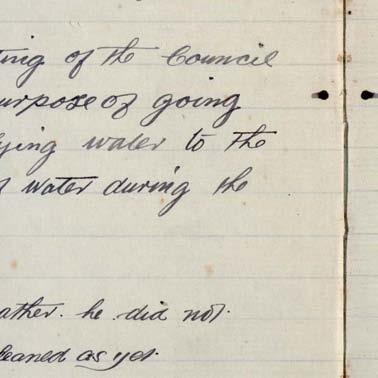 ting of the Council
urpose of going
ying water to the
d water during the
ather. he did not.
leaned as yet.